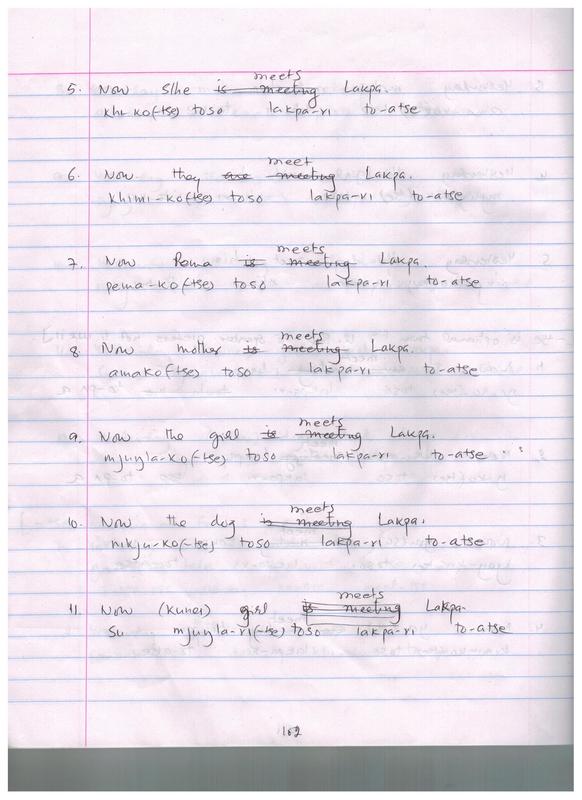 meets
5. Now S/he is meeting Lakpa.
khi-ko(-tse) toso lakpa-ri to-atse
meet
6. Now they are meeting Lakpa.
khimi-ko(-tse) toso lakpa-ri to-atse
meets
7. Now Pema is meeting Lakpa.
pema-ko(-tse) toso lakpa-ri to-atse
meets
8. Now mother is meeting Lakpa.
amako(-tse) toso lakpa-ri to-atse
meets
9. Now the girl is meeting Lakpa.
mjuyla-ko(-tse) toso lakpa-ri to-atse
meets
10. Now the dog is meeting Lakpa.
nikju-ko(-tse) toso lakpa-ri to-atse
meets
11. Now (kunai) girl is meeting Lakpa.
su mjuyla-ri(-tse) toso lakpa-ri to-atse
102